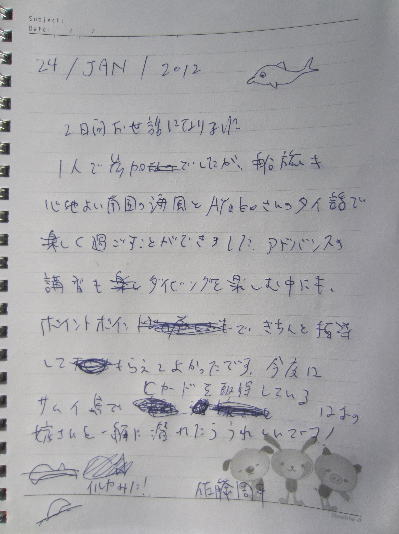 Subject:
Date:
24/JAN/2012
2日間お世話になりました
1人で参加でしたが、船旅も
心地よい南国の海風とAyakoさんのタイ話で
楽しく過ごすことができました。アドバンスの
講習も楽しくダイビングを楽しむ中にも、
ポイントポイントで、きちんと指導
して もらえてよかったです。今度は
Cカードを取得している
サムイ島で
嫁さんと一緒に潜れたらうれしいでーす!
イルカみたい!
佐藤